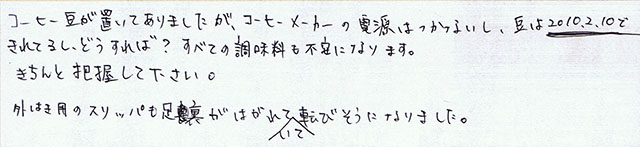 コーヒー豆が置いてありましたが、コーヒーメーカーの電源はつかないし、豆は2010.2.10で
きれてるし、どうすれば？すべての調味料も不安になります。
きちんと把握して下さい。
外はき用のスリッパも足裏がはがれていて転びそうになりました。